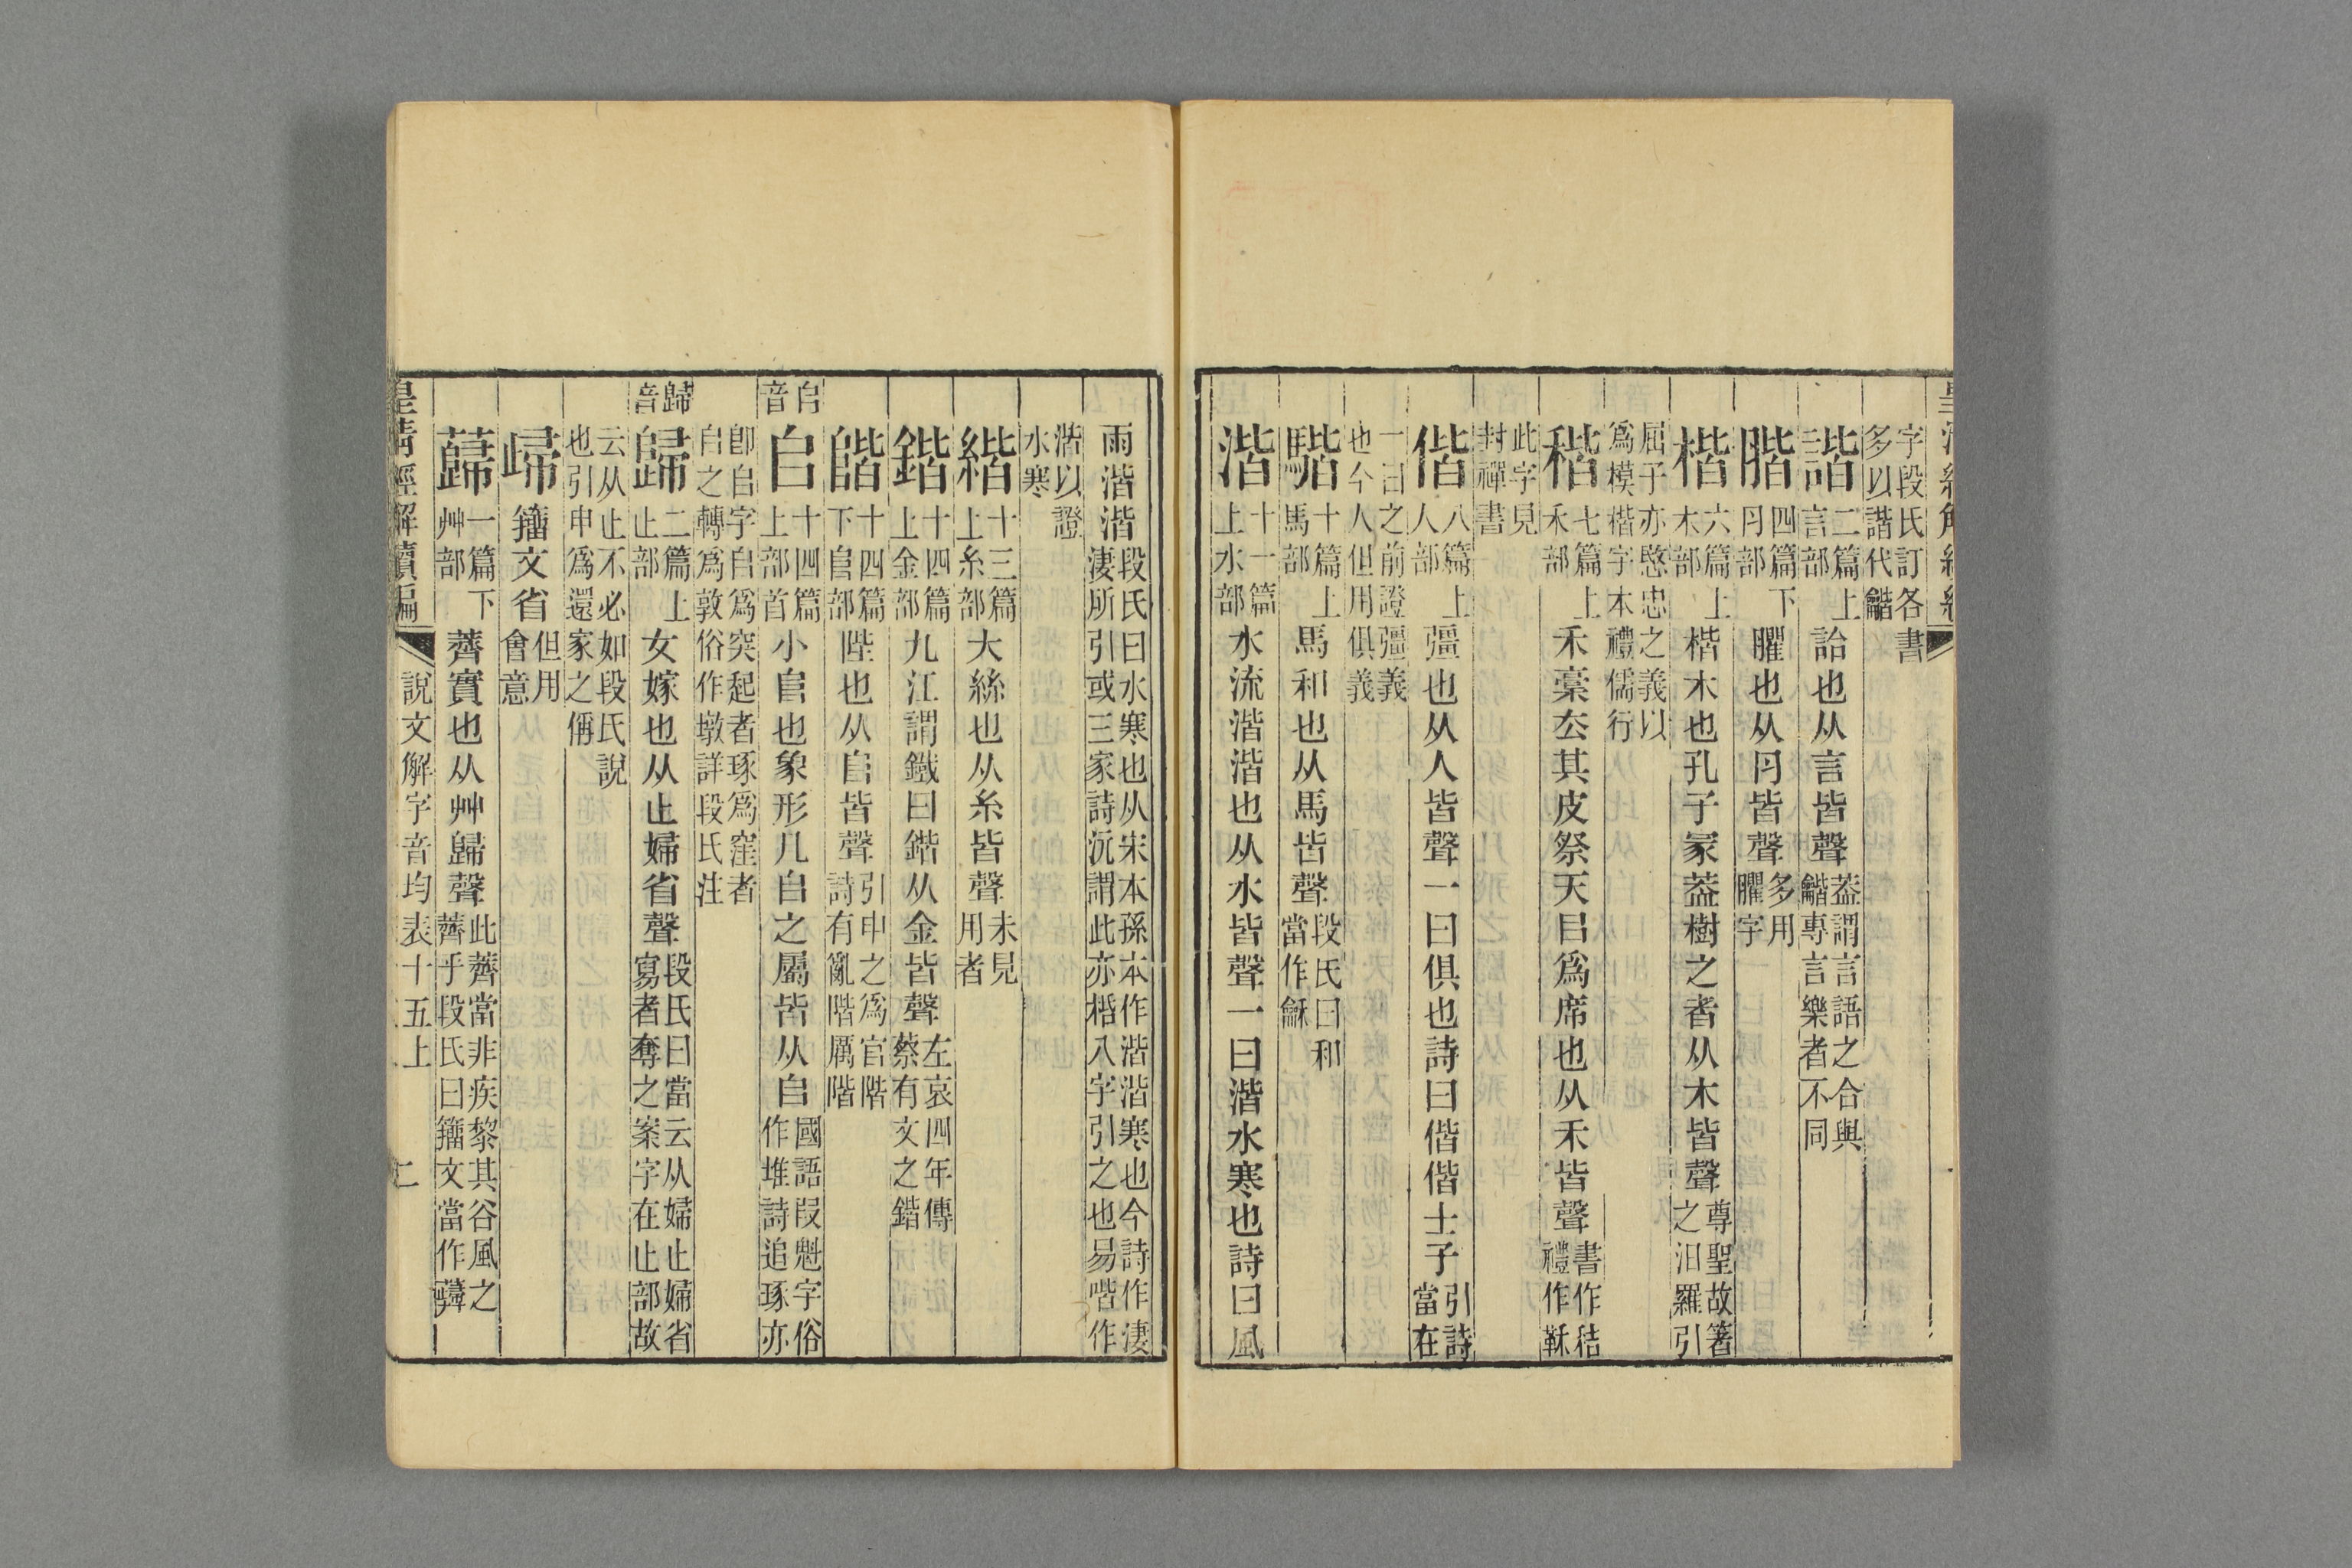 字段氏訂各書
多以諧代龤
諧二篇上言部詥也从言皆聲蓋謂言語之合與龤專言樂者不同
腊四篇下肉部臞也从肉皆聲多用臞字
楷六篇上木部楷木也孔子冢葢樹之者从木皆聲尊聖故箸之汨羅引
屈子亦愍忠之義以
爲模楷字本禮儒行
稭七篇上禾部禾稾去其皮祭天㠯爲席也从禾皆聲書作秸禮作鞂
此字見
封禪書
偕八篇上人部彊也从人皆聲一曰俱也詩曰偕偕士子引詩當在
一曰之前證彊義
也今人但用俱義
騔十篇上馬部馬和也从馬皆聲段氏曰和當作龢
湝十一篇上水部水流湝湝也从水皆聲一曰湝水寒也詩曰風
雨湝湝段氏曰水寒也从宋本孫本作湝湝寒也今詩作淒淒所引或三家詩沅謂此亦楷八字引之也易喈作
湝以證
水寒
緒十三篇上糸部大絲也从糸皆聲未見用者
鍇十四篇上金部九江謂鐵曰鍇从金皆聲左哀四年傳蔡有文之鍇
階十四篇下𨸏部陛也从𨸏皆聲引申之爲官階詩有亂階厲階
𠂤音
𠂤十四篇上部首小𨸏也象形凡𠂤之屬皆从𠂤國語叚魁字俗作堆詩追琢亦
卽𠂤字𠂤爲突起者琢爲窪者
𠂤之轉爲敦俗作墩詳段氏注
歸音
歸二篇上止部女嫁也从止婦省聲段氏曰當云从婦止婦省寫者奪之案字在止部故
云从止不必如段氏說
也引申爲還家之偁
㱕籒文省但用會意
蘬一篇下艸部薺實也从艸歸聲此薺當非疾黎其谷風之薺乎段氏曰籒文當作
皇清經解續編
說文解字音均表十五上
二